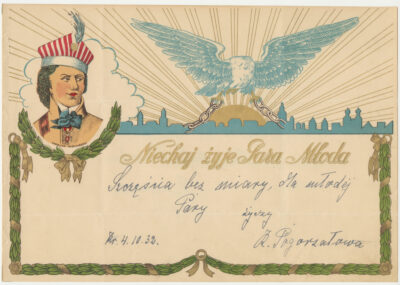 Niechaj żyje Para Młoda
Szczęścia bez miary, dla młodej
Pary życzy
Kr. 4.10.32. Z. Pogorzałowa